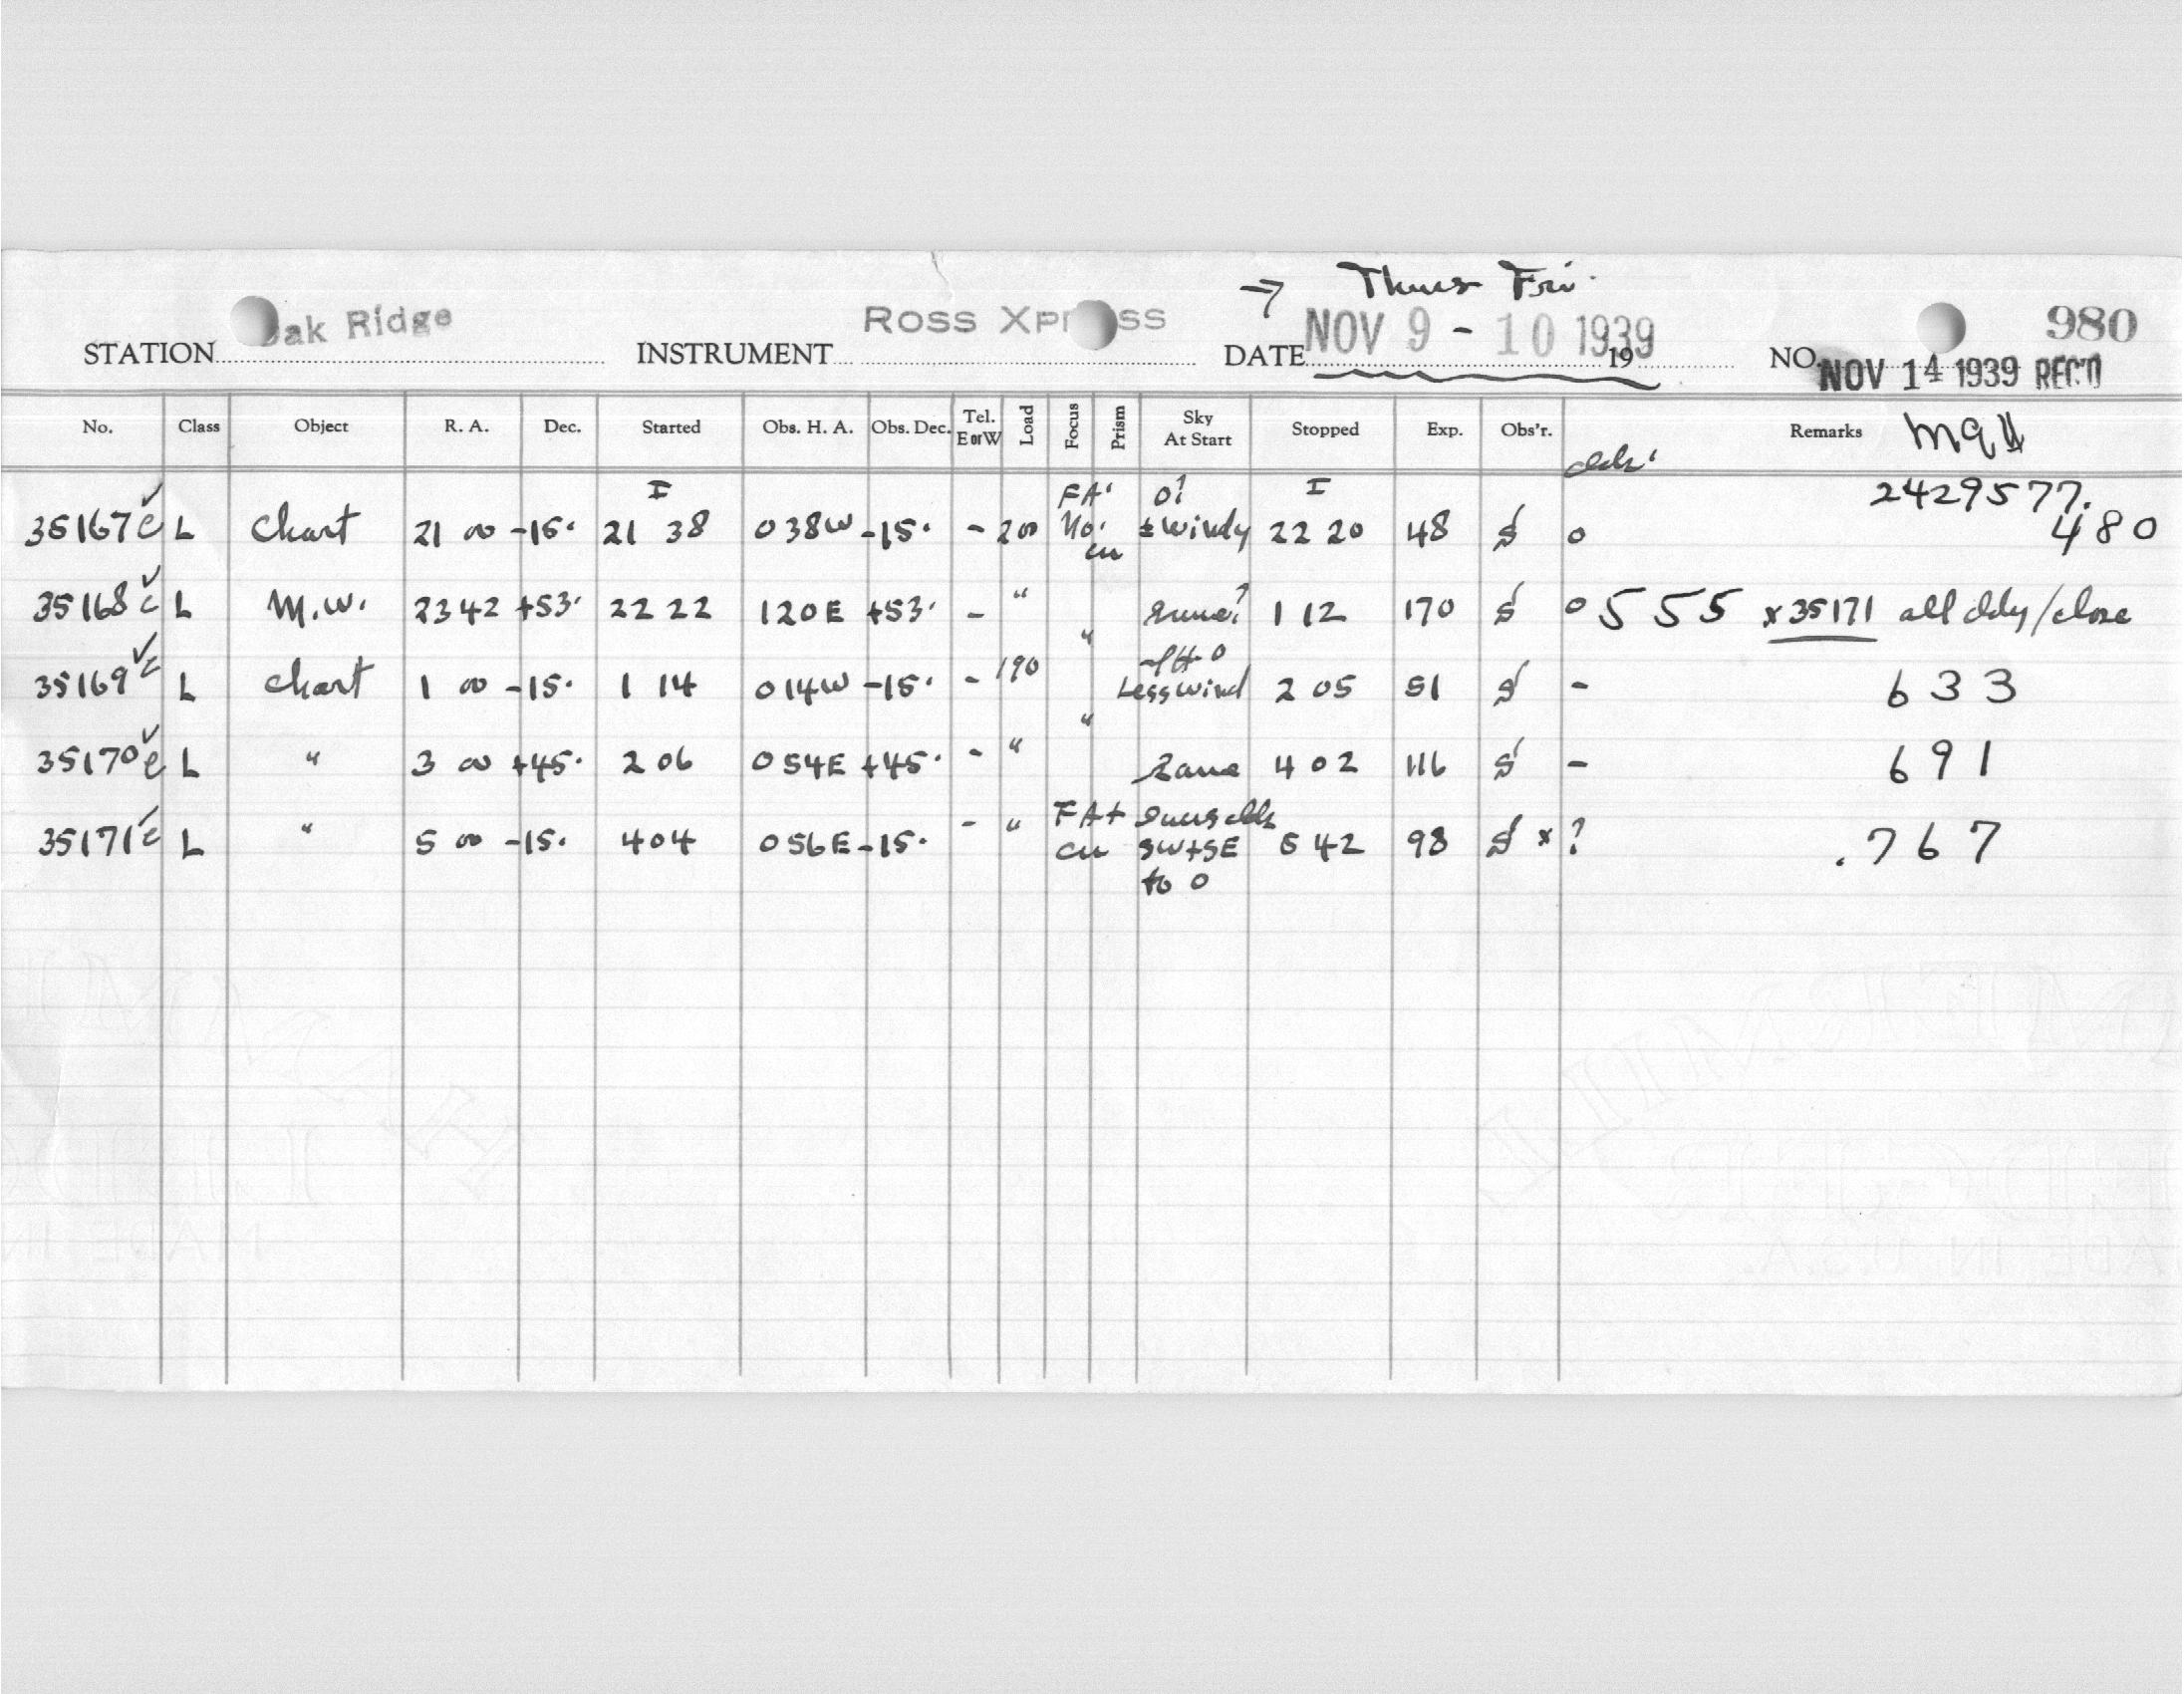 → Thurs Fri.
STATION Oak Ridge INSTRUMENT Ross Xpress DATE NOV 9 - 10 1939 19 NO. 980
NOV 14 1939 REC'D
No. Class Object R. A. Dec. Started Obs. H. A. Obs. Dec. Tel. E or W Load Focus Prism Sky At Start Stopped Exp. Obs'r. Remarks
I FA' 0? I 2429577.
35167 c L Chart 21 00 -15. 21 38 0 38W -15. - 200 No. cu ± windy 22 20 48 S 0 480
35168 c L M.W. 23 42 +53. 22 22 1 20 E +53. - " same? 1 12 170 S 0 555 x 35171 all cldy/close
35169 c L Chart 1 00 -15. 1 14 0 14W -15. - 190 " 0 Less wind 2 05 51 S - 633
35170 c L " 3 00 +45. 2 06 0 54E +45. - " " Same 4 02 116 S - 691
35171 c L " 5 00 -15. 4 04 0 56E -15. - " FA+ cu SW+SE to 0 5 42 98 S x ? .767
MADE IN U.S.A.